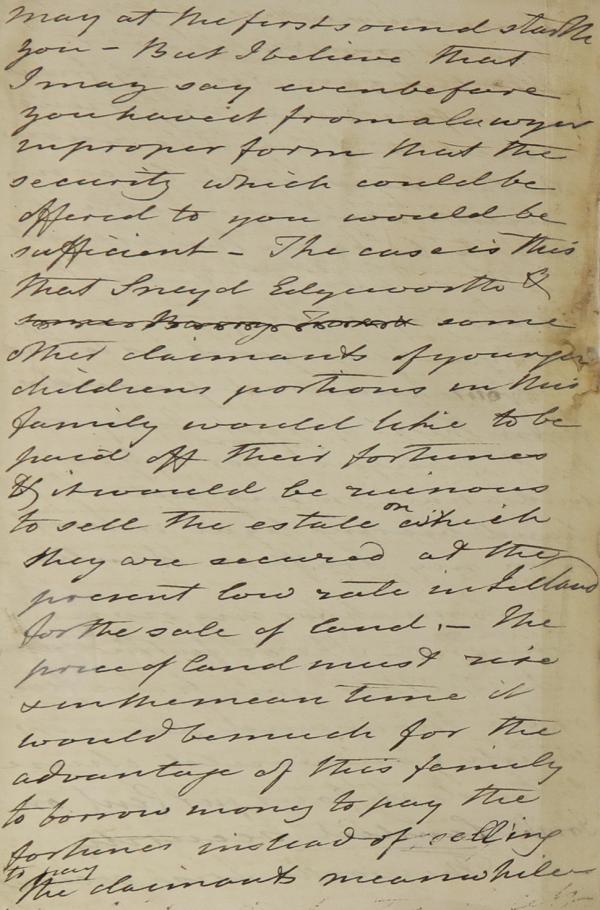 may at the first sound startle
you – But I believe that
I may say even before
you have it from a lawyer
in proper form that the
security which could be
offered to you would be
sufficient – The case is this
that Sneyd Edgeworth &
some
other claimants of younger
childrens portions in this
family would like to be
paid off their fortunes
& it would be ruinous
to sell the estate on which
they are secured at the
present low rate in Ireland
for the sale of land. – The
price of land must rise
& in the mean time it
would be much for the
advantage of this family
to borrow money to pay the
fortunes instead of selling
to pay
the claimants meanwhile –